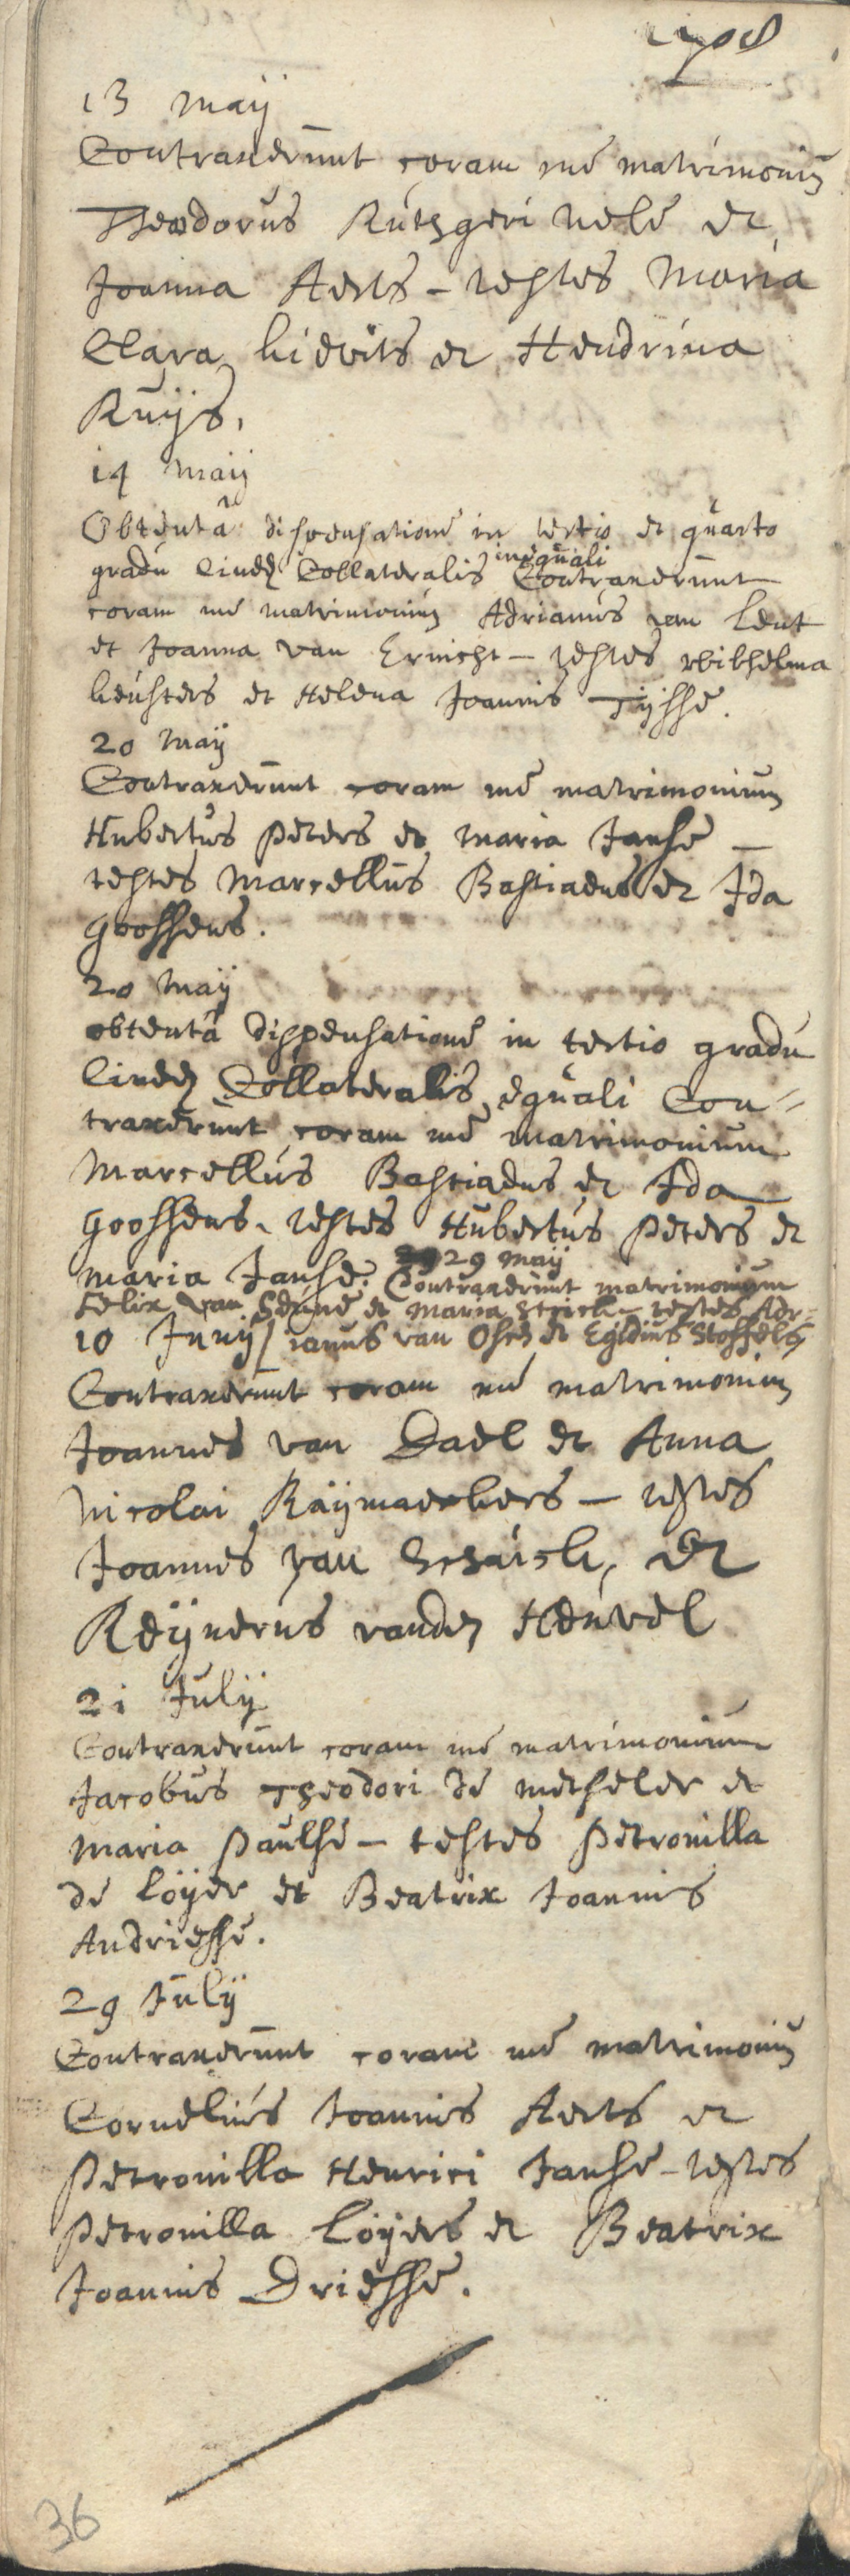 1708
13 Maij
Contraxerunt coram me matrimoniũ
Theodorus Rutsgeri Nele et
Joanna Aerts - testes Maria
Clara Lievits et Hendrina
Ruijs,
14 Maij
Obtentâ dispensatione in tertio et quarto
inæquali
gradu lineæ Collateralis Contraxerunt
coram me matrimoniũ Adrianus van Lent
et Joanna van Ernicht - testes Wilhelma
Leusters et Helena Joannis Tijsse.
20 Maij
Contraxerunt coram me matrimonium
Hubertus Peters et Maria Janse -
testes Marcellus Bastiaens et Ida
Goossens.
20 Maij
obtentâ dispensatione in tertio gradu
lineæ Collateralis equali Con=
traxerunt coram me matrimonium
Marcellus Bastiaens et Ida
Goossens. testes Hubertus Peters et
29 Maij
Maria Janse. Contraxerunt matrimonium
Felix van et Maria - testes Adr=
10 Junij / ianus van Osch et Egidius Stoffels
Contraxerunt coram me matrimoniũ
Joannes van Dael et Anna
Nicolai Raijmaekers - testes
Joannes van et
Reijnerus vanden Heuvel
21 Julij
Contraxerunt coram me matrimonium
Jacobus Theodori de Mecheler et
Maria Paulse - testes Petronilla
de Loijer et Beatrix Joannis
Andriesse.
29 Julij
Contraxerunt coram me matrimoniũ
Cornelius Joannis Aerts et
Petronilla Henrici Janse - testes
Petronilla Loijers et Beatrix
Joannis Driesse.
36